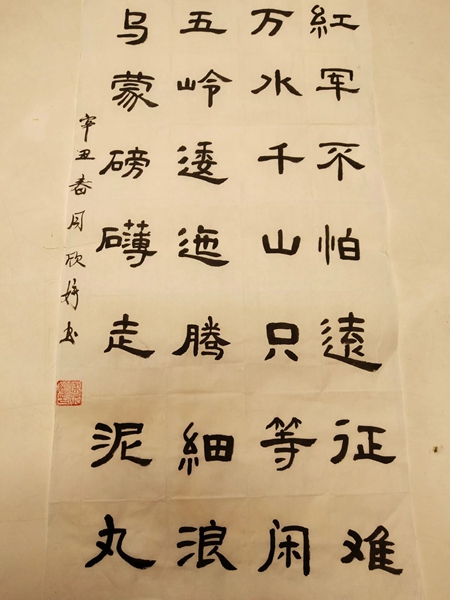 紅军不怕遠征难
万水千山只等闲
五岭逶迤腾細浪
乌蒙磅礴走泥丸
辛丑春月欣婷书